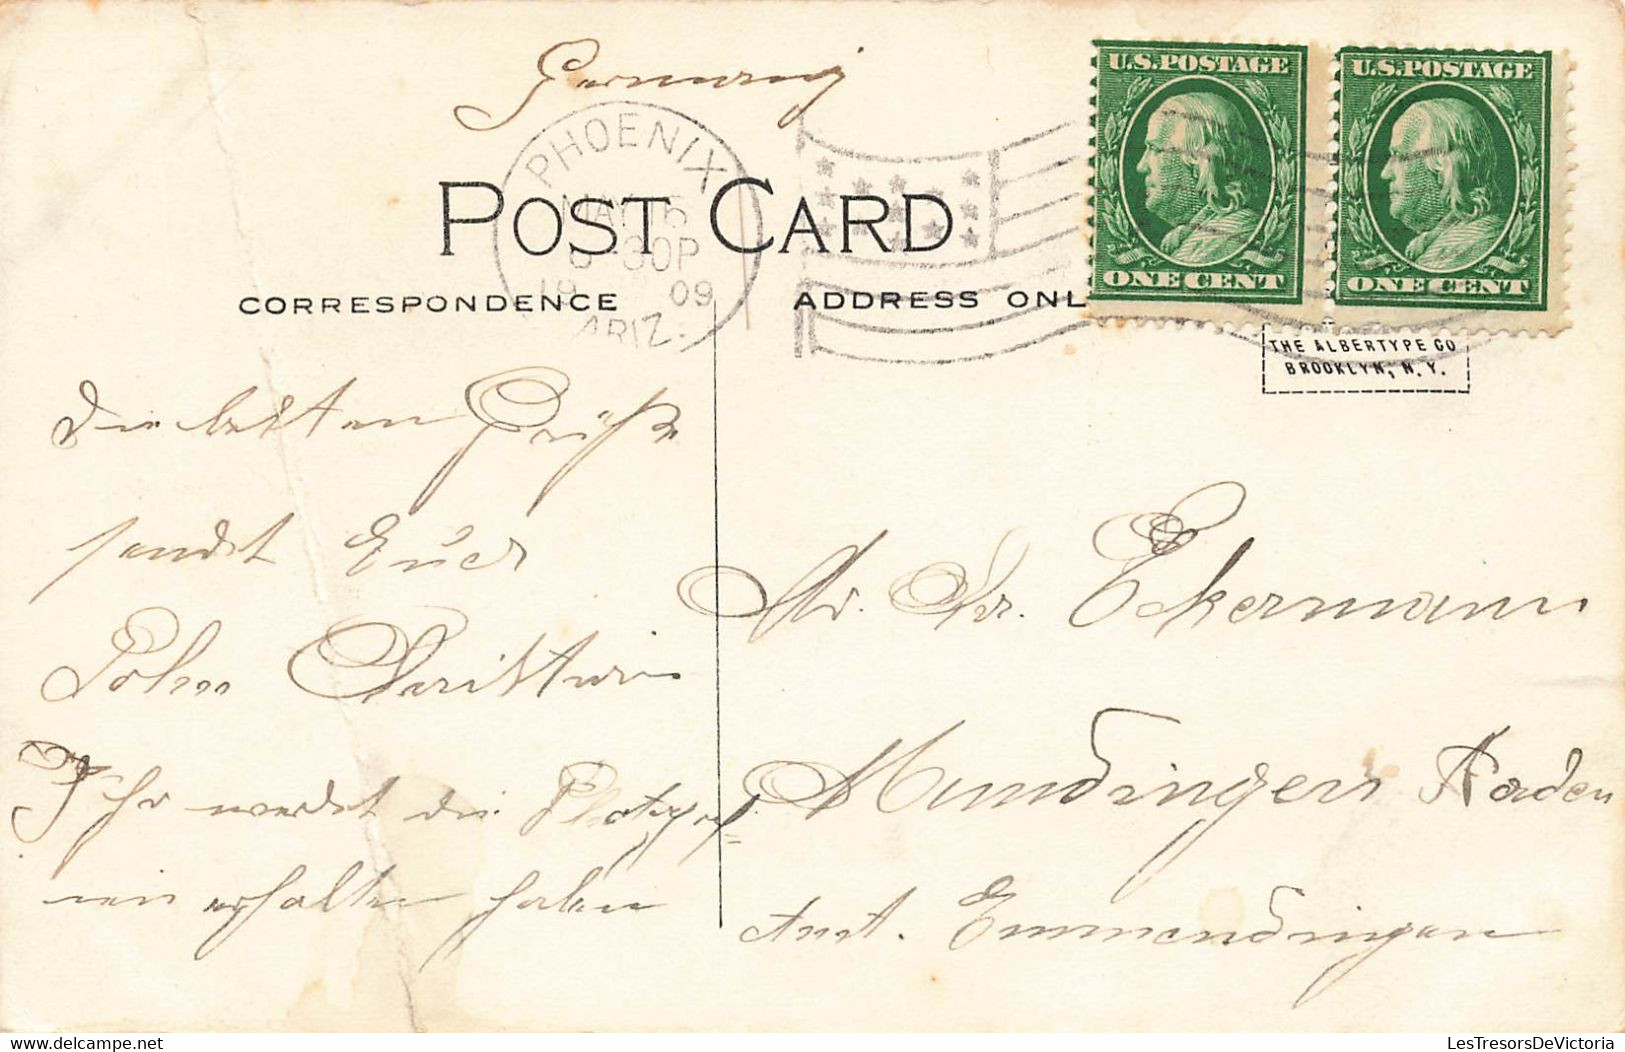 Germany
U.S.POSTAGE
U.S.POSTAGE
PHOENIX
MAY 15
30P
19 09
ARIZ.
POST CARD
ONE CENT
ONE CENT
CORRESPONDENCE
ADDRESS ONL
THE ALBERTYPE CO
BROOKLYN, N.Y.
Die besten Grüße
sendet Euer
Sohn
Ihr werdet die
erhalten haben
Mr. Dr. Eckermann
Mundingen Baden
Amt. Emmendingen
www.delcampe.net
LesTresorsDeVictoria